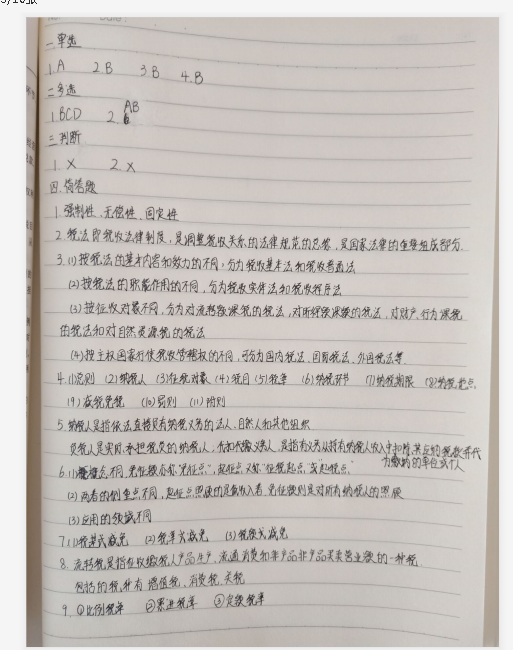 一.单选
1.A 2 B 3 B 4.B
二多选
1.BCD 2. AB
三.判断
1. X 2. X
四.简答题
1.强制性、无偿性、固定性
2.税法即税收法律制度,是调整税收关系的法律规范的总称,是国家法律的重要组成部分.
3.(1)按税法的基本内容和效力的不同,分为税收基本法和税收普通法
(2)按税法的职能作用的不同,分为税收实体法和税收程序法
(3)按征收对象不同,分为对流转额课税的税法,对所得额课税的税法,对财产、行为课税
的税法和对自然资源税的税法
(4)按主权国家行使税收管辖权的不同,可分为国内税法、国际税法、外国税法等.
4.(1)总则 (2)纳税人 (3)征税对象 (4)税目 (5)税率 (6)纳税环节 (7)纳税期限 (8)纳税地点
(9)减税免税 (10)罚则 (11)附则
5.纳税人是指依法直接负有纳税义务的法人、自然人和其他组织
负税人是实际承担税负的纳税人,代扣代缴义务人,是指有义务从持有纳税人收入中扣除其应纳税款并代
为缴纳的单位或个人
6.(1)概念不同,免征额亦称"免征点",起征点又称"征税起点"或"起税点"
(2)两者的侧重点不同,起征点照顾的是低收入者,免征额则是对所有纳税人的照顾
(3)应用的领域不同
7.(1)税基式减免 (2)税率式减免 (3)税额式减免
8.流转税是指在以纳税人产品生产、流通消费和非产品买卖营业额的一种税
包括的税种有 增值税、消费税、关税
9.①比例税率 ②累进税率 ③定额税率